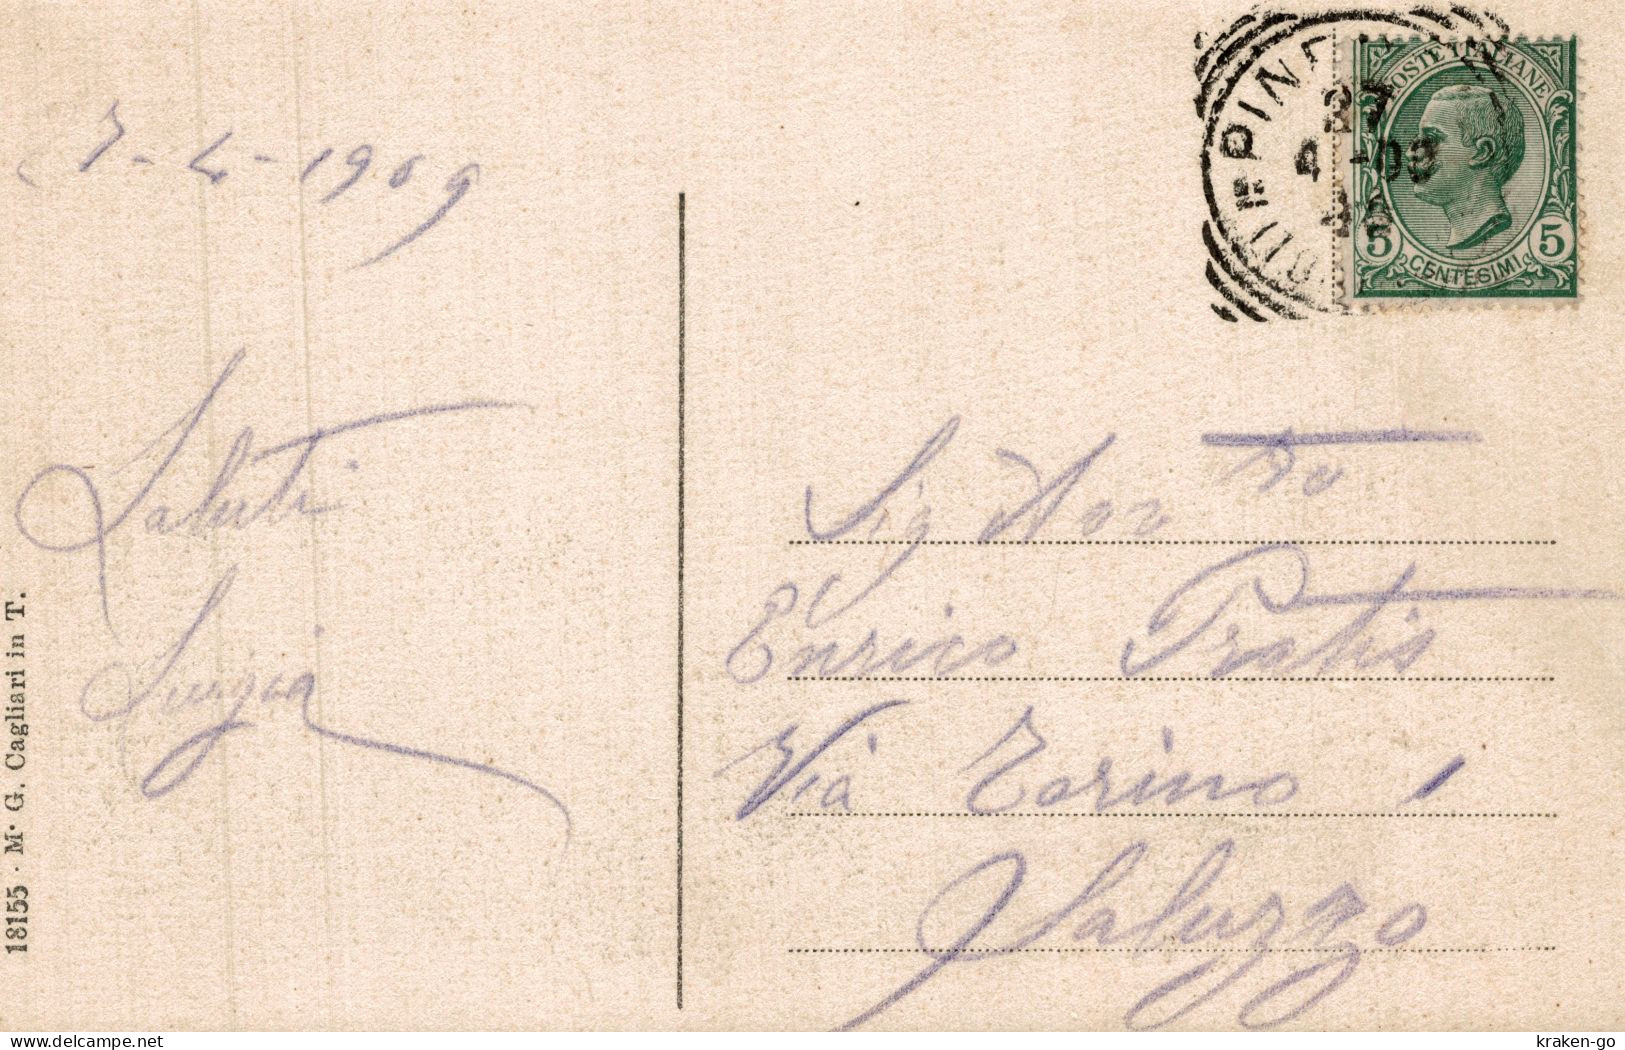 4-1909
Saluti
Luigia
18155 · M. G. Cagliari in T.
PINE
27
4 -09
POSTE ITALIANE
5 5
CENTESIMI
Sig
Enrico Pratis
Via Torino 1
Saluzzo
delcampe.net
kraken-go